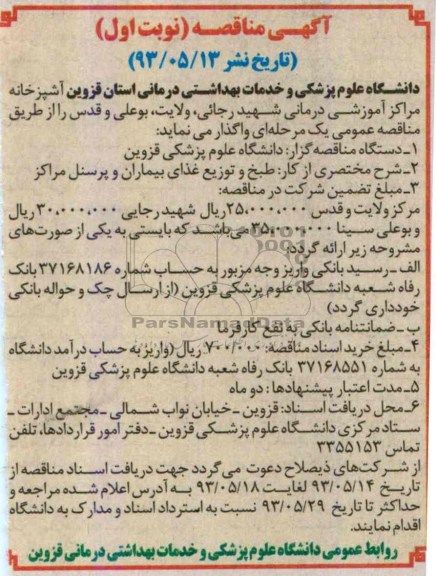 آگهی مناقصه (نوبت اول)
(تاریخ نشر ۹۳/۰۵/۱۳)
دانشگاه علوم پزشکی و خدمات بهداشتی درمانی استان قزوین آشپزخانه
مراکز آموزشی درمانی شهید رجائی، ولایت، بوعلی و قدس را از طریق
مناقصه عمومی یک مرحله‌ای واگذار می نماید:
۱ـ دستگاه مناقصه گزار: دانشگاه علوم پزشکی قزوین
۲ـ شرح مختصری از کار: طبخ و توزیع غذای بیماران و پرسنل مراکز
۳ـ مبلغ تضمین شرکت در مناقصه:
مرکز ولایت و قدس ۲۵،۰۰۰،۰۰۰ ریال شهید رجایی ۳۰،۰۰۰،۰۰۰ ریال
و بوعلی سینا ۳۵،۰۰۰،۰۰۰ می‌باشد که بایستی به یکی از صورت‌های
مشروحه زیر ارائه گردد:
الف ـ رسید بانکی واریز وجه مزبور به حساب شماره ۳۷۱۶۸۱۸۶ بانک
رفاه شعبه دانشگاه علوم پزشکی قزوین (از ارسال چک و حواله بانکی
خودداری گردد)
ب ـ ضمانتنامه بانکی به نفع کارفرما
ParsNamadData
۴ـ مبلغ خرید اسناد مناقصه: ۷۰۰/۰۰۰ ریال (واریز به حساب درآمد دانشگاه
به شماره ۳۷۱۶۸۵۵۱ بانک رفاه شعبه دانشگاه علوم پزشکی قزوین
۵ـ مدت اعتبار پیشنهادها: دو ماه
۶ـ محل دریافت اسناد: قزوین ـ خیابان نواب شمالی ـ مجتمع ادارات ـ
ستاد مرکزی دانشگاه علوم پزشکی قزوین ـ دفتر امور قراردادها، تلفن
تماس ۳۳۵۵۱۵۳
از شرکت‌های ذیصلاح دعوت می گردد جهت دریافت اسناد مناقصه از
تاریخ ۹۳/۰۵/۱۴ لغایت ۹۳/۰۵/۱۸ به آدرس اعلام شده مراجعه و
حداکثر تا تاریخ ۹۳/۰۵/۲۹ نسبت به استرداد اسناد و مدارک به دانشگاه
اقدام نمایند.
روابط عمومی دانشگاه علوم پزشکی و خدمات بهداشتی درمانی قزوین